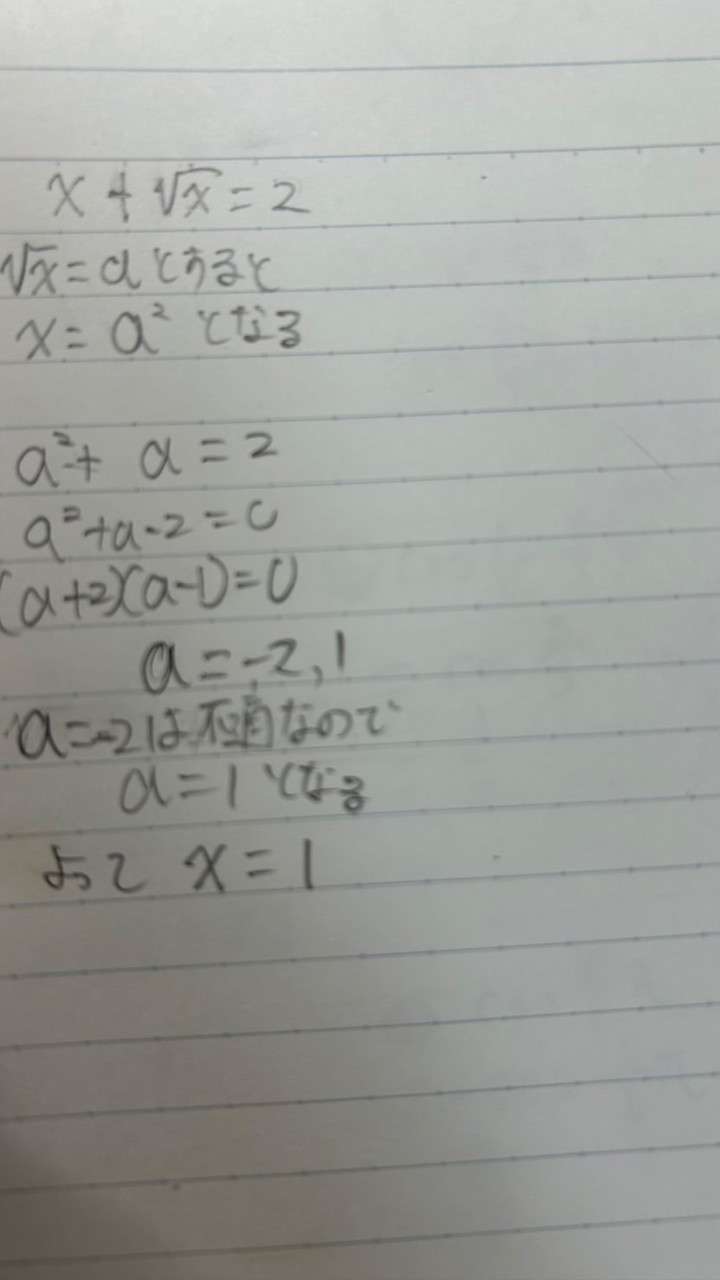 x + √x = 2
√x = a とすると
x = a² となる
a² + a = 2
a² + a - 2 = 0
(a+2)(a-1) = 0
a = -2, 1
a = -2は不適なので
a = 1 となる
よって x = 1